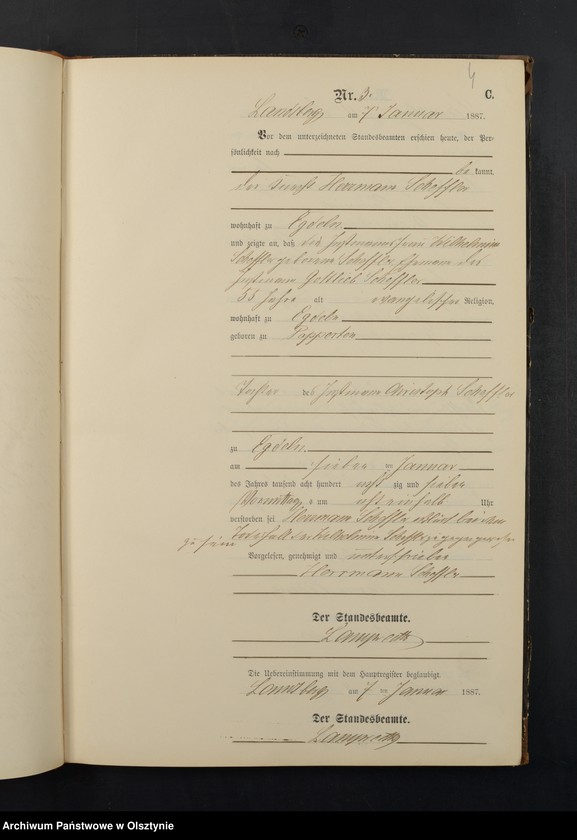 4
Nr. 3. C.
Landsberg am 7 Januar 1887.
Vor dem unterzeichneten Standesbeamten erschien heute, der Per-
sönlichkeit nach
be kannt,
der Herrmann Scheffler
wohnhaft zu
und zeigte an, daß die Instmannsfrau Wilhelmine
Scheffler geborene Scheffler, Ehefrau des
Instmann Gottlieb Scheffler
55 Jahre alt evangelischer Religion,
wohnhaft zu
geboren zu Papperten
Tochter des Instmann Christoph Scheffler
zu
am sieben ten Januar
des Jahres tausend acht hundert acht zig und sieben
Vormittag s um acht einhalb Uhr
verstorben sei Herrmann Scheffler erklärt bei dem
Todesfall der Wilhelmine Scheffler zugegen gewesen
zu sein
Vorgelesen, genehmigt und unterschrieben
Herrmann Scheffler
Der Standesbeamte.
Die Uebereinstimmung mit dem Hauptregister beglaubigt.
Landsberg am 7 ten Januar 1887.
Der Standesbeamte.
Archiwum Państwowe w Olsztynie